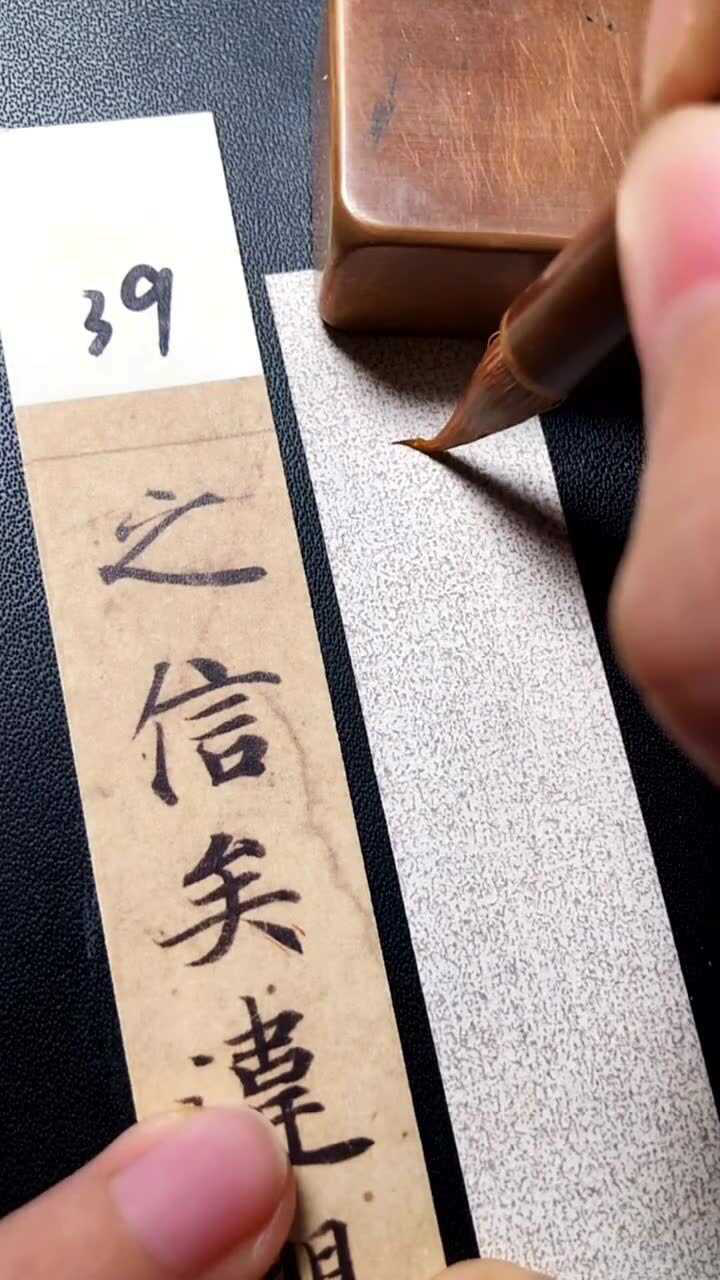 39
之信矣違